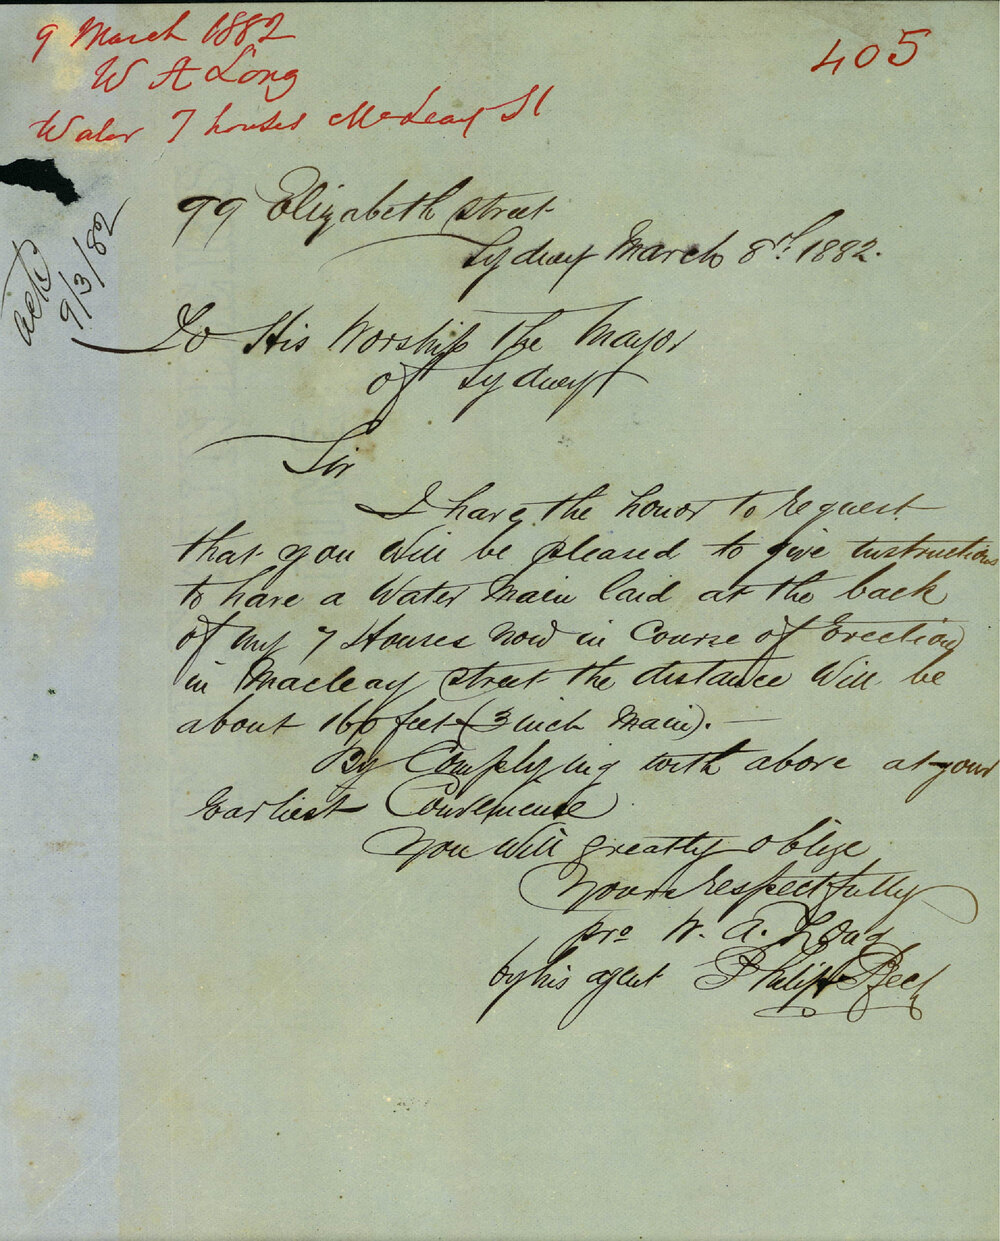 9 March 1882
W A Long
Water 7 houses McLeay St
405
ackd
9/3/82
99 Elizabeth street
Sydney March 8th 1882.
To His Worship the Mayor
of Sydney
Sir
I have the honor to request
that you Will be pleased to give instructions
to have a Water Main laid at the back
of my 7 Houses now in Course of Erection
in Macleay street the distance Will be
about 160 feet (3 inch Main). —
By Complying with above at your
Earliest Convenience
You Will greatly oblige
Yours respectfully
pro W. A. Long
by his agent Philip Beck